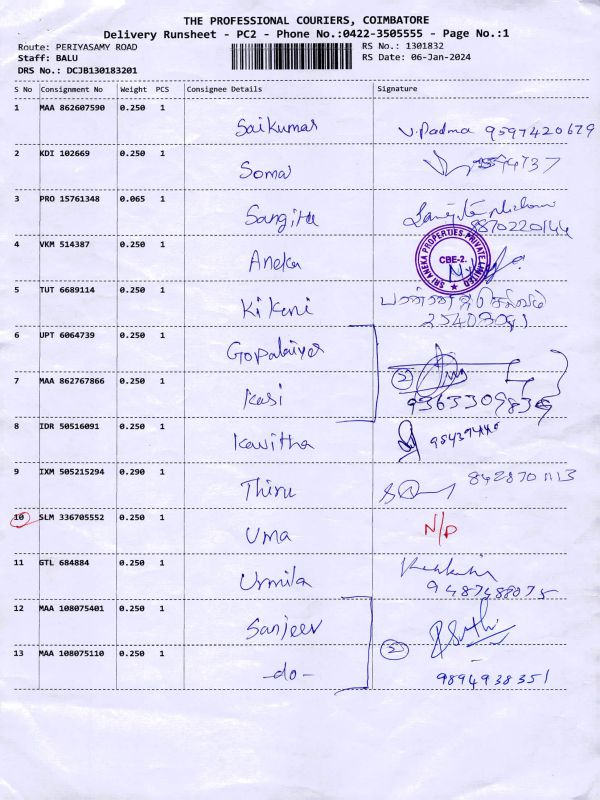 THE PROFESSIONAL COURIERS, COIMBATORE
Delivery Runsheet - PC2 - Phone No.:0422-3505555 - Page No.:1
Route: PERIYASAMY ROAD RS No.: 1301832
Staff: BALU RS Date: 06-Jan-2024
DRS No.: DCJB130183201
S No Consignment No Weight PCS Consignee Details Signature
1 MAA 862607590 0.250 1 Saikumar V.Padma 9597420679
2 KDI 102669 0.250 1 Soma
3 PRO 15761348 0.065 1 Sangita 8870220144
4 VKM 514387 0.250 1 Aneka SRI ANEKA PROPERTIES PRIVATE LIMITED CBE-2.
5 TUT 6689114 0.250 1 Kikani
6 UPT 6064739 0.250 1 Gopalaiyer
7 MAA 862767866 0.250 1 Kasi 2
8 IDR 50516091 0.250 1 Kavitha
9 IXM 505215294 0.290 1 Thiru
10 SLM 336705552 0.250 1 Uma N/D
11 GTL 684884 0.250 1 Urmila 9487488075
12 MAA 108075401 0.250 1 Sanjeev
13 MAA 108075110 0.250 1 -do- 2 9894938351